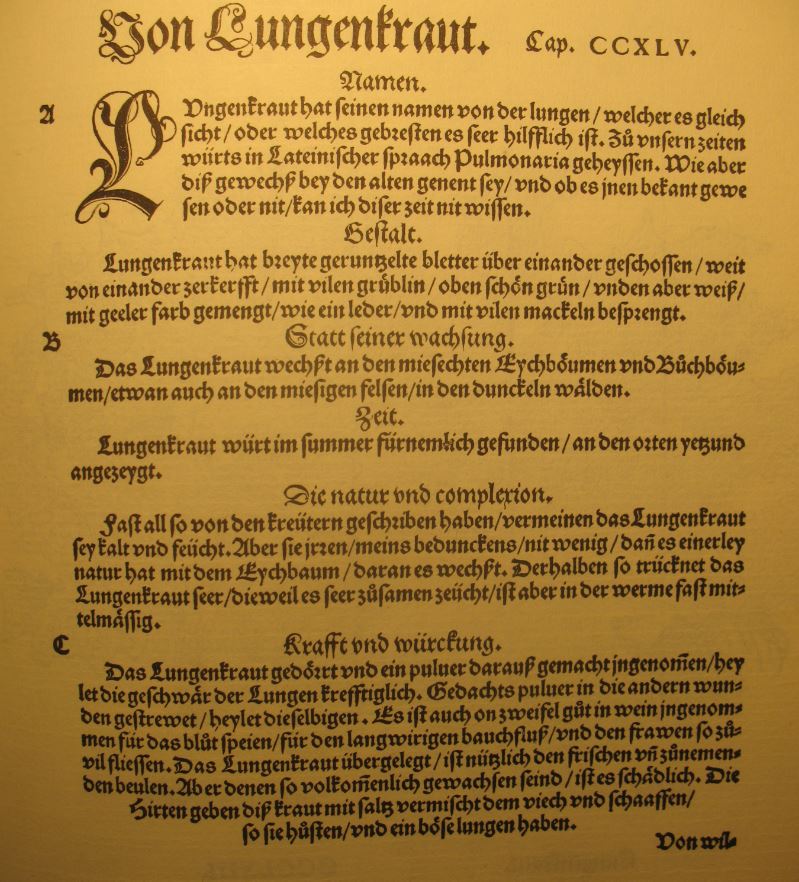 Von Lungenkraut. Cap. CCXLV.
Namen.
A LVngenkraut hat seinen namen von der lungen / welcher es gleich
sicht / oder welches gebresten es seer hilfflich ist. Zů vnsern zeiten
würts in Lateinischer spraach Pulmonaria geheyssen. Wie aber
diß gewechß bey den alten genent sey / vnd ob es jnen bekant gewe
sen oder nit / kan ich diser zeit nit wissen.
Gestalt.
Lungenkraut hat breyte geruntzelte bletter über einander geschossen / weit
von einander zerkerfft / mit vilen grüblin / oben schön grün / vnden aber weiß /
mit geeler farb gemengt / wie ein leder / vnd mit vilen mackeln besprengt.
B Statt seiner wachsung.
Das Lungenkraut wechßt an den miesechten Eychböumen vnd Bůchböu-
men / etwan auch an den miesigen felsen / in den dunckeln wälden.
Zeit.
Lungenkraut würt im summer fürnemlich gefunden / an den orten yetzund
angezeygt.
Die natur vnd complexion.
Fast all so von den kreütern geschriben haben / vermeinen das Lungenkraut
sey kalt vnd feücht. Aber sie jrren / meins bedunckens / nit wenig / dañ es einerley
natur hat mit dem Eychbaum / daran es wechßt. Derhalben so trücknet das
Lungenkraut seer / dieweil es seer zůsamen zeücht / ist aber in der werme fast mit-
telmässig.
C Krafft vnd würckung.
Das Lungenkraut gedörrt vnd ein puluer darauß gemacht jngenom̃en / hey
let die geschwär der Lungen krefftiglich. Gedachts puluer in die andern wun-
den gestrewet / heylet dieselbigen. Es ist auch on zweifel gůt in wein jngenom-
men für das blůt speien / für den langwirigen bauchfluß / vnd den frawen so zů-
vil fliessen. Das Lungenkraut übergelegt / ist nützlich den frischen vñ zůnemen-
den beulen. Aber denen so volkom̃enlich gewachsen seind / ist es schädlich. Die
Hirten geben diß kraut mit saltz vermischt dem viech vnd schaaffen /
so sie hůsten / vnd ein böse lungen haben.
Von wil-